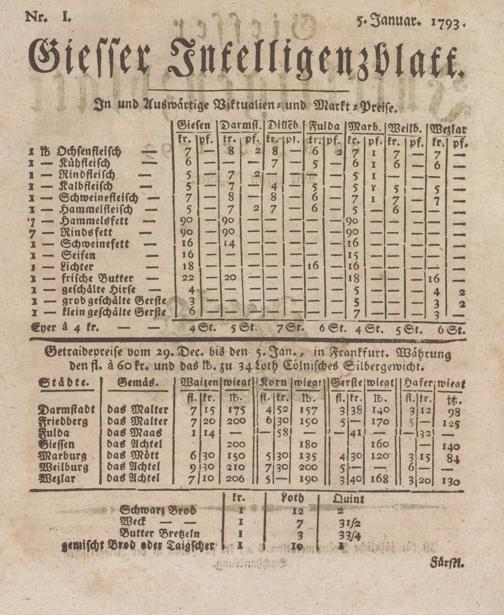 Nr. I. 5. Januar. 1793.
Giesser Intelligenzblatt.
In und Auswärtige Viktualien- und Markt-Preise.
Giesen Darmst. Dilleb. Fulda Marb. Weilb. Wezlar
kr. pf. kr. pf. kr. pf. kr. pf. kr. pf. kr. pf. kr. pf.
1 ℔ Ochsenfleisch 7 — 8 2 8 — 6 2 7 1 7 — 7 —
1 — Kühfleisch 6 — — — 7 — 5 — 6 1 6 — 6 —
1 — Rindfleisch 5 — 7 2 — — — — 5 1 — — — —
1 — Kalbfleisch 5 — 7 — 4 — 5 — 5 1 5 — 5 —
1 — Schweinefleisch 7 — 8 — 8 — 6 — 7 1 7 — 7 —
1 — Hammelfleisch 5 — 7 2 7 — 6 — 5 — 6 — — —
7 — Hammelsfett 90 — 90 —
7 — Rindsfett 90 — 90 —
1 — Schweinefett 16 — 14 — 16 —
1 — Seifen 16 — 15 —
1 — Lichter 18 — 16 — 16 —
1 — frische Butter 22 — 20 — 18 — 16 —
1 — geschälte Hirse 4 — 5 — 4 2
1 — grob geschälte Gerste 3 — 3 2
1 — klein geschälte Gerste 6 — 5 — 5 2
Eyer à 4 kr. — — 4 St. 5 St. 7 St. 6 St. 4 St. 5 St. 6 St.
Getraidepreise vom 29. Dec. bis den 5. Jan., in Frankfurt. Währung
den fl. à 60 kr. und das ℔. zu 34 Loth Cölnisches Silbergewicht.
Städte. Gemäs. Waizen wiegt Korn wiegt Gerste wiegt Hafer wiegt
fl. kr. ℔. fl. kr. ℔. fl. kr. ℔. fl. kr. ℔.
Darmstadt das Malter 7 15 175 4 52 157 3 38 140 3 12 98
Friedberg das Malter 7 20 200 6 30 190 5 — 170 5 — 125
Fulda das Maas 1 14 — — 58 — 41 — — 32 —
Giessen das Achtel 200 180 160 — 140
Marburg das Mött 6 30 150 5 30 135 4 30 120 3 15 84
Weilburg das Achtel 9 30 210 7 30 200 5 — 6 — —
Wezlar das Achtel 7 10 206 5 — 190 3 40 168 3 20 130
kr. Loth Quint
Schwarz Brod 1 12 2
Weck — — 1 7 3 1/2
Butter Bretzeln 1 3 3 3/4
gemischt Brod oder Taigscher 1 10 1
Fürstl.